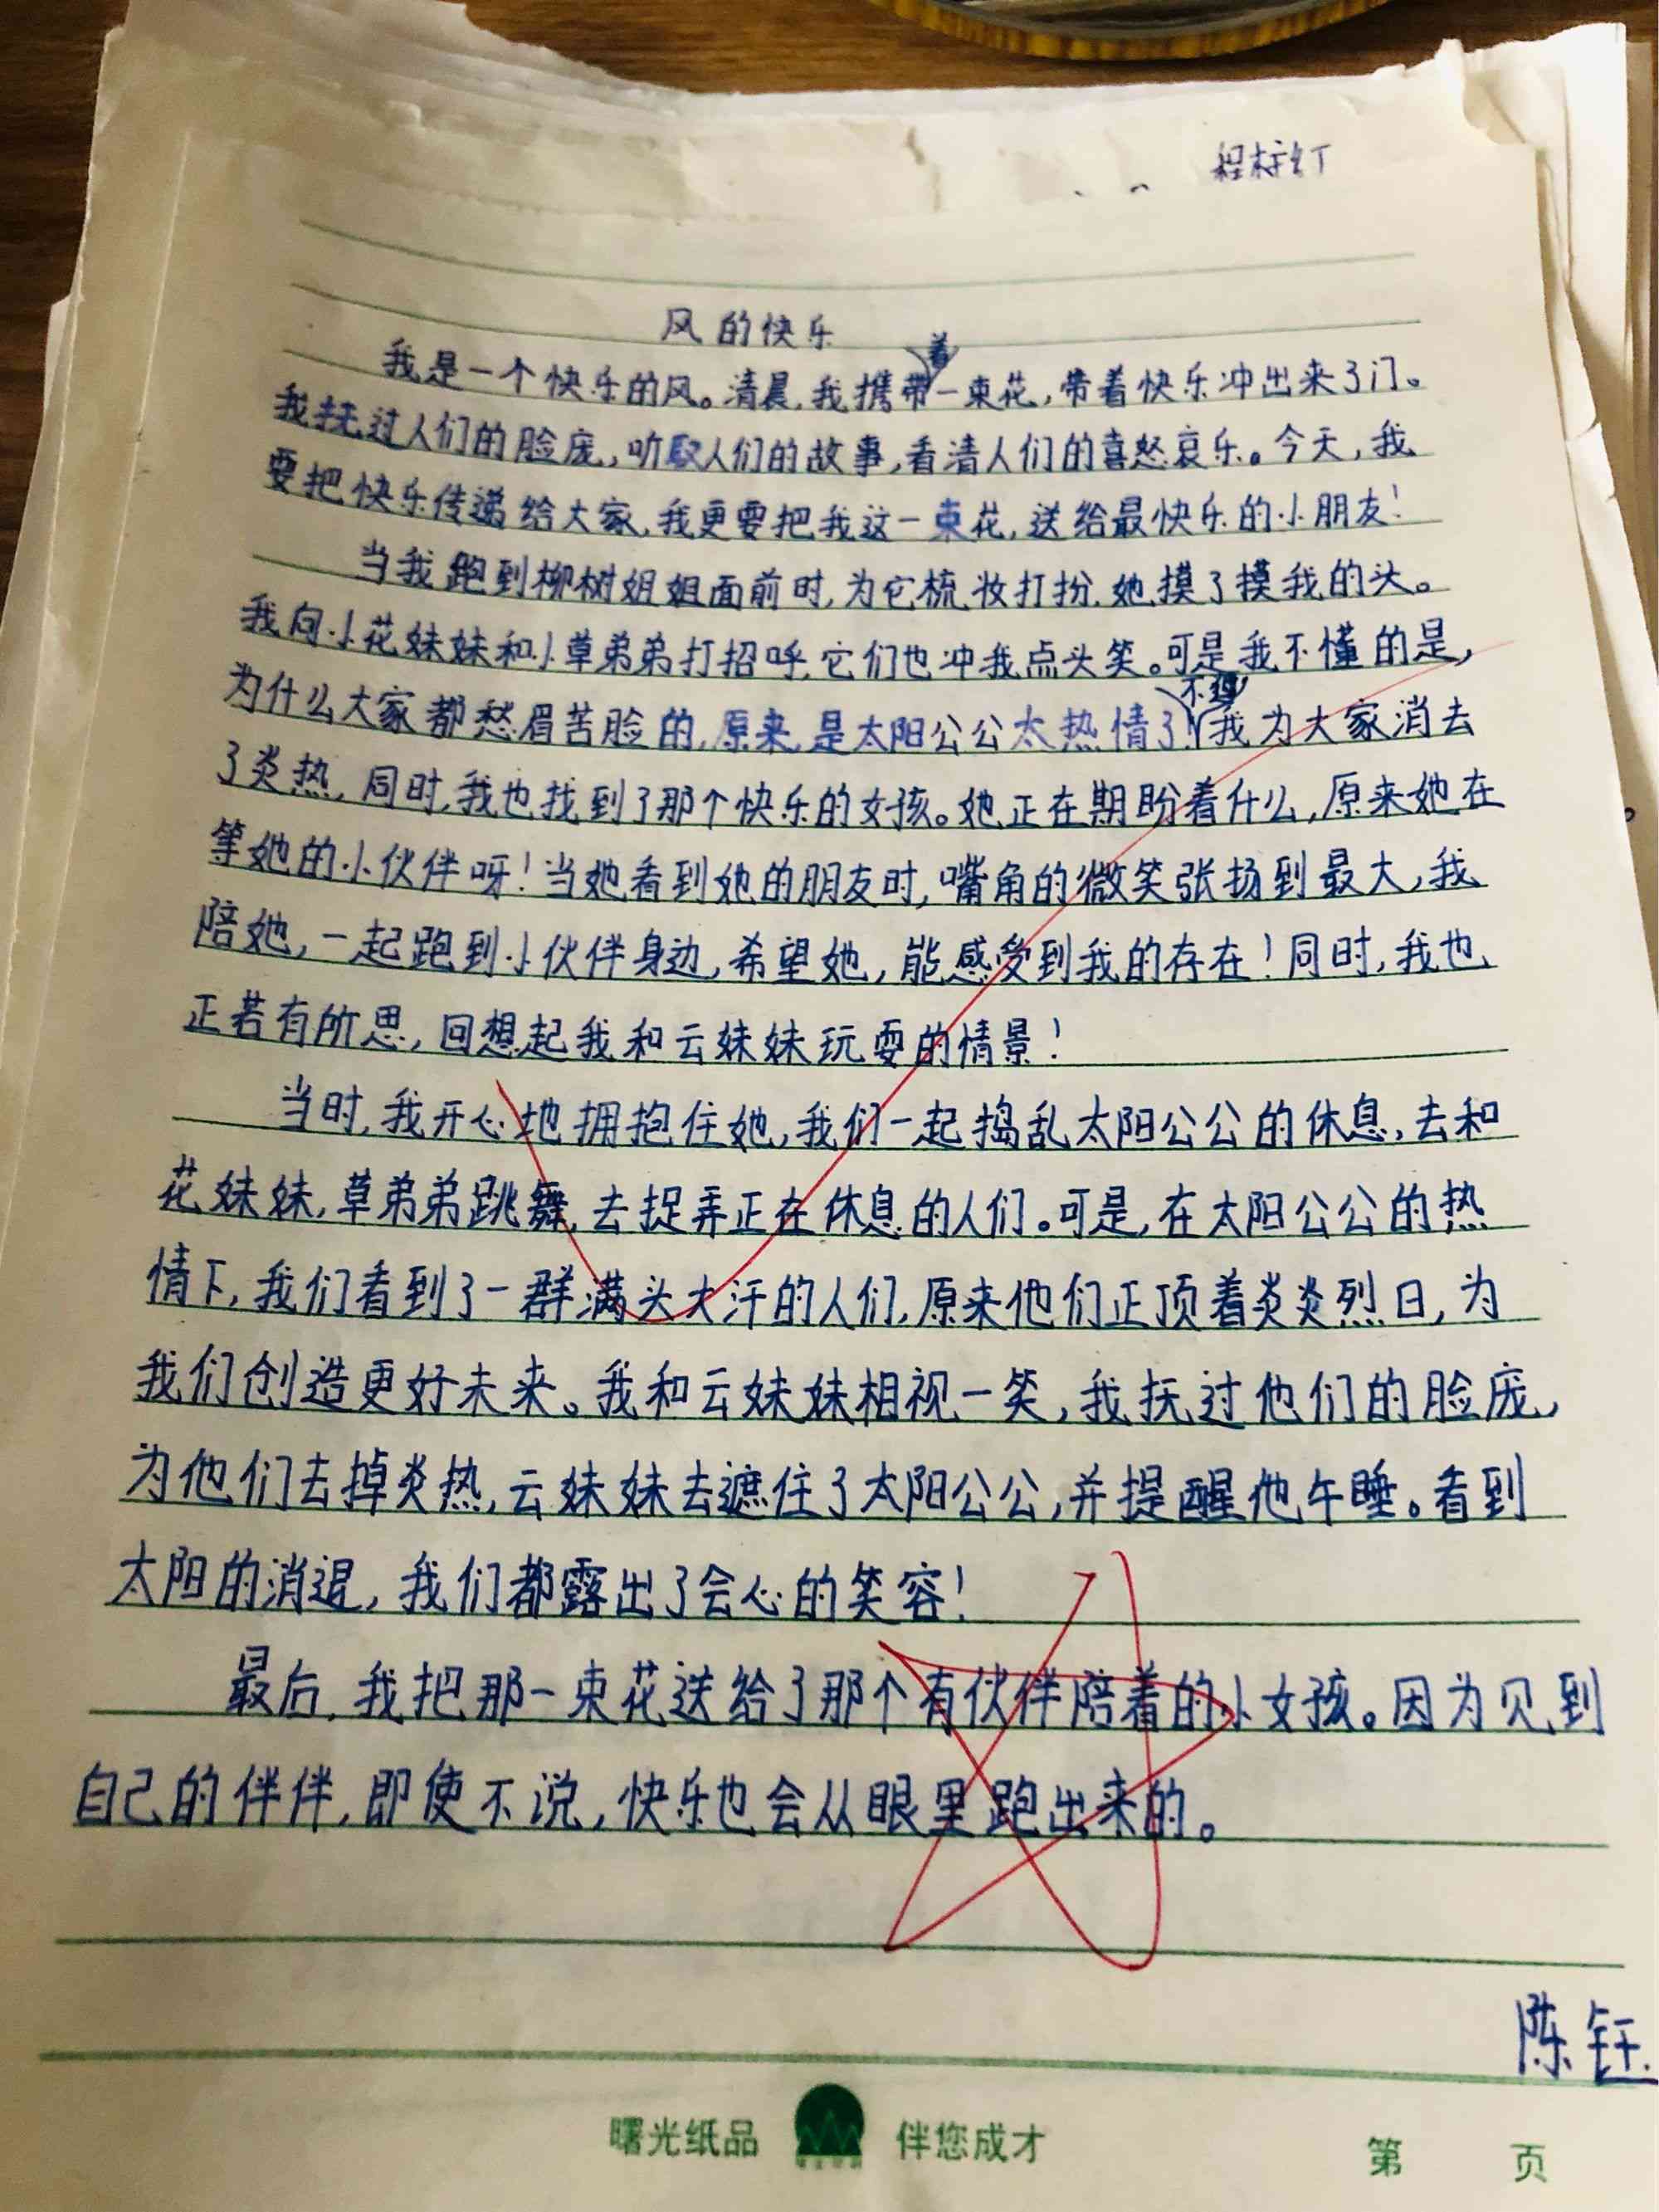 风的快乐
我是一个快乐的风。清晨,我携带着一束花,带着快乐冲出来了门。
我抚过人们的脸庞,听取人们的故事,看清人们的喜怒哀乐。今天,我
要把快乐传递给大家,我更要把我这一束花,送给最快乐的小朋友!
当我跑到柳树姐姐面前时,为它梳妆打扮,她摸了摸我的头。
我向小花妹妹和小草弟弟打招呼,它们也冲我点头笑。可是我不懂的是,
为什么大家都愁眉苦脸的,原来是太阳公公太热情了!我为大家消去
了炎热,同时,我也找到了那个快乐的女孩。她正在期盼着什么,原来她在
等她的小伙伴呀!当她看到她的朋友时,嘴角的微笑张扬到最大,我
陪她,一起跑到小伙伴身边,希望她,能感受到我的存在!同时,我也
正若有所思,回想起我和云妹妹玩耍的情景!
当时,我开心地拥抱住她,我们一起捣乱太阳公公的休息,去和
花妹妹,草弟弟跳舞,去捉弄正在休息的人们。可是,在太阳公公的热
情下,我们看到了一群满头大汗的人们,原来他们正顶着炎炎烈日,为
我们创造更好未来。我和云妹妹相视一笑,我抚过他们的脸庞,
为他们去掉炎热,云妹妹去遮住了太阳公公,并提醒他午睡。看到
太阳的消退,我们都露出了会心的笑容!
最后,我把那一束花送给了那个有伙伴陪着的小女孩。因为见到
自己的伴伴,即使不说,快乐也会从眼里跑出来的。
陈钰
曙光纸品 伴您成才
第 页